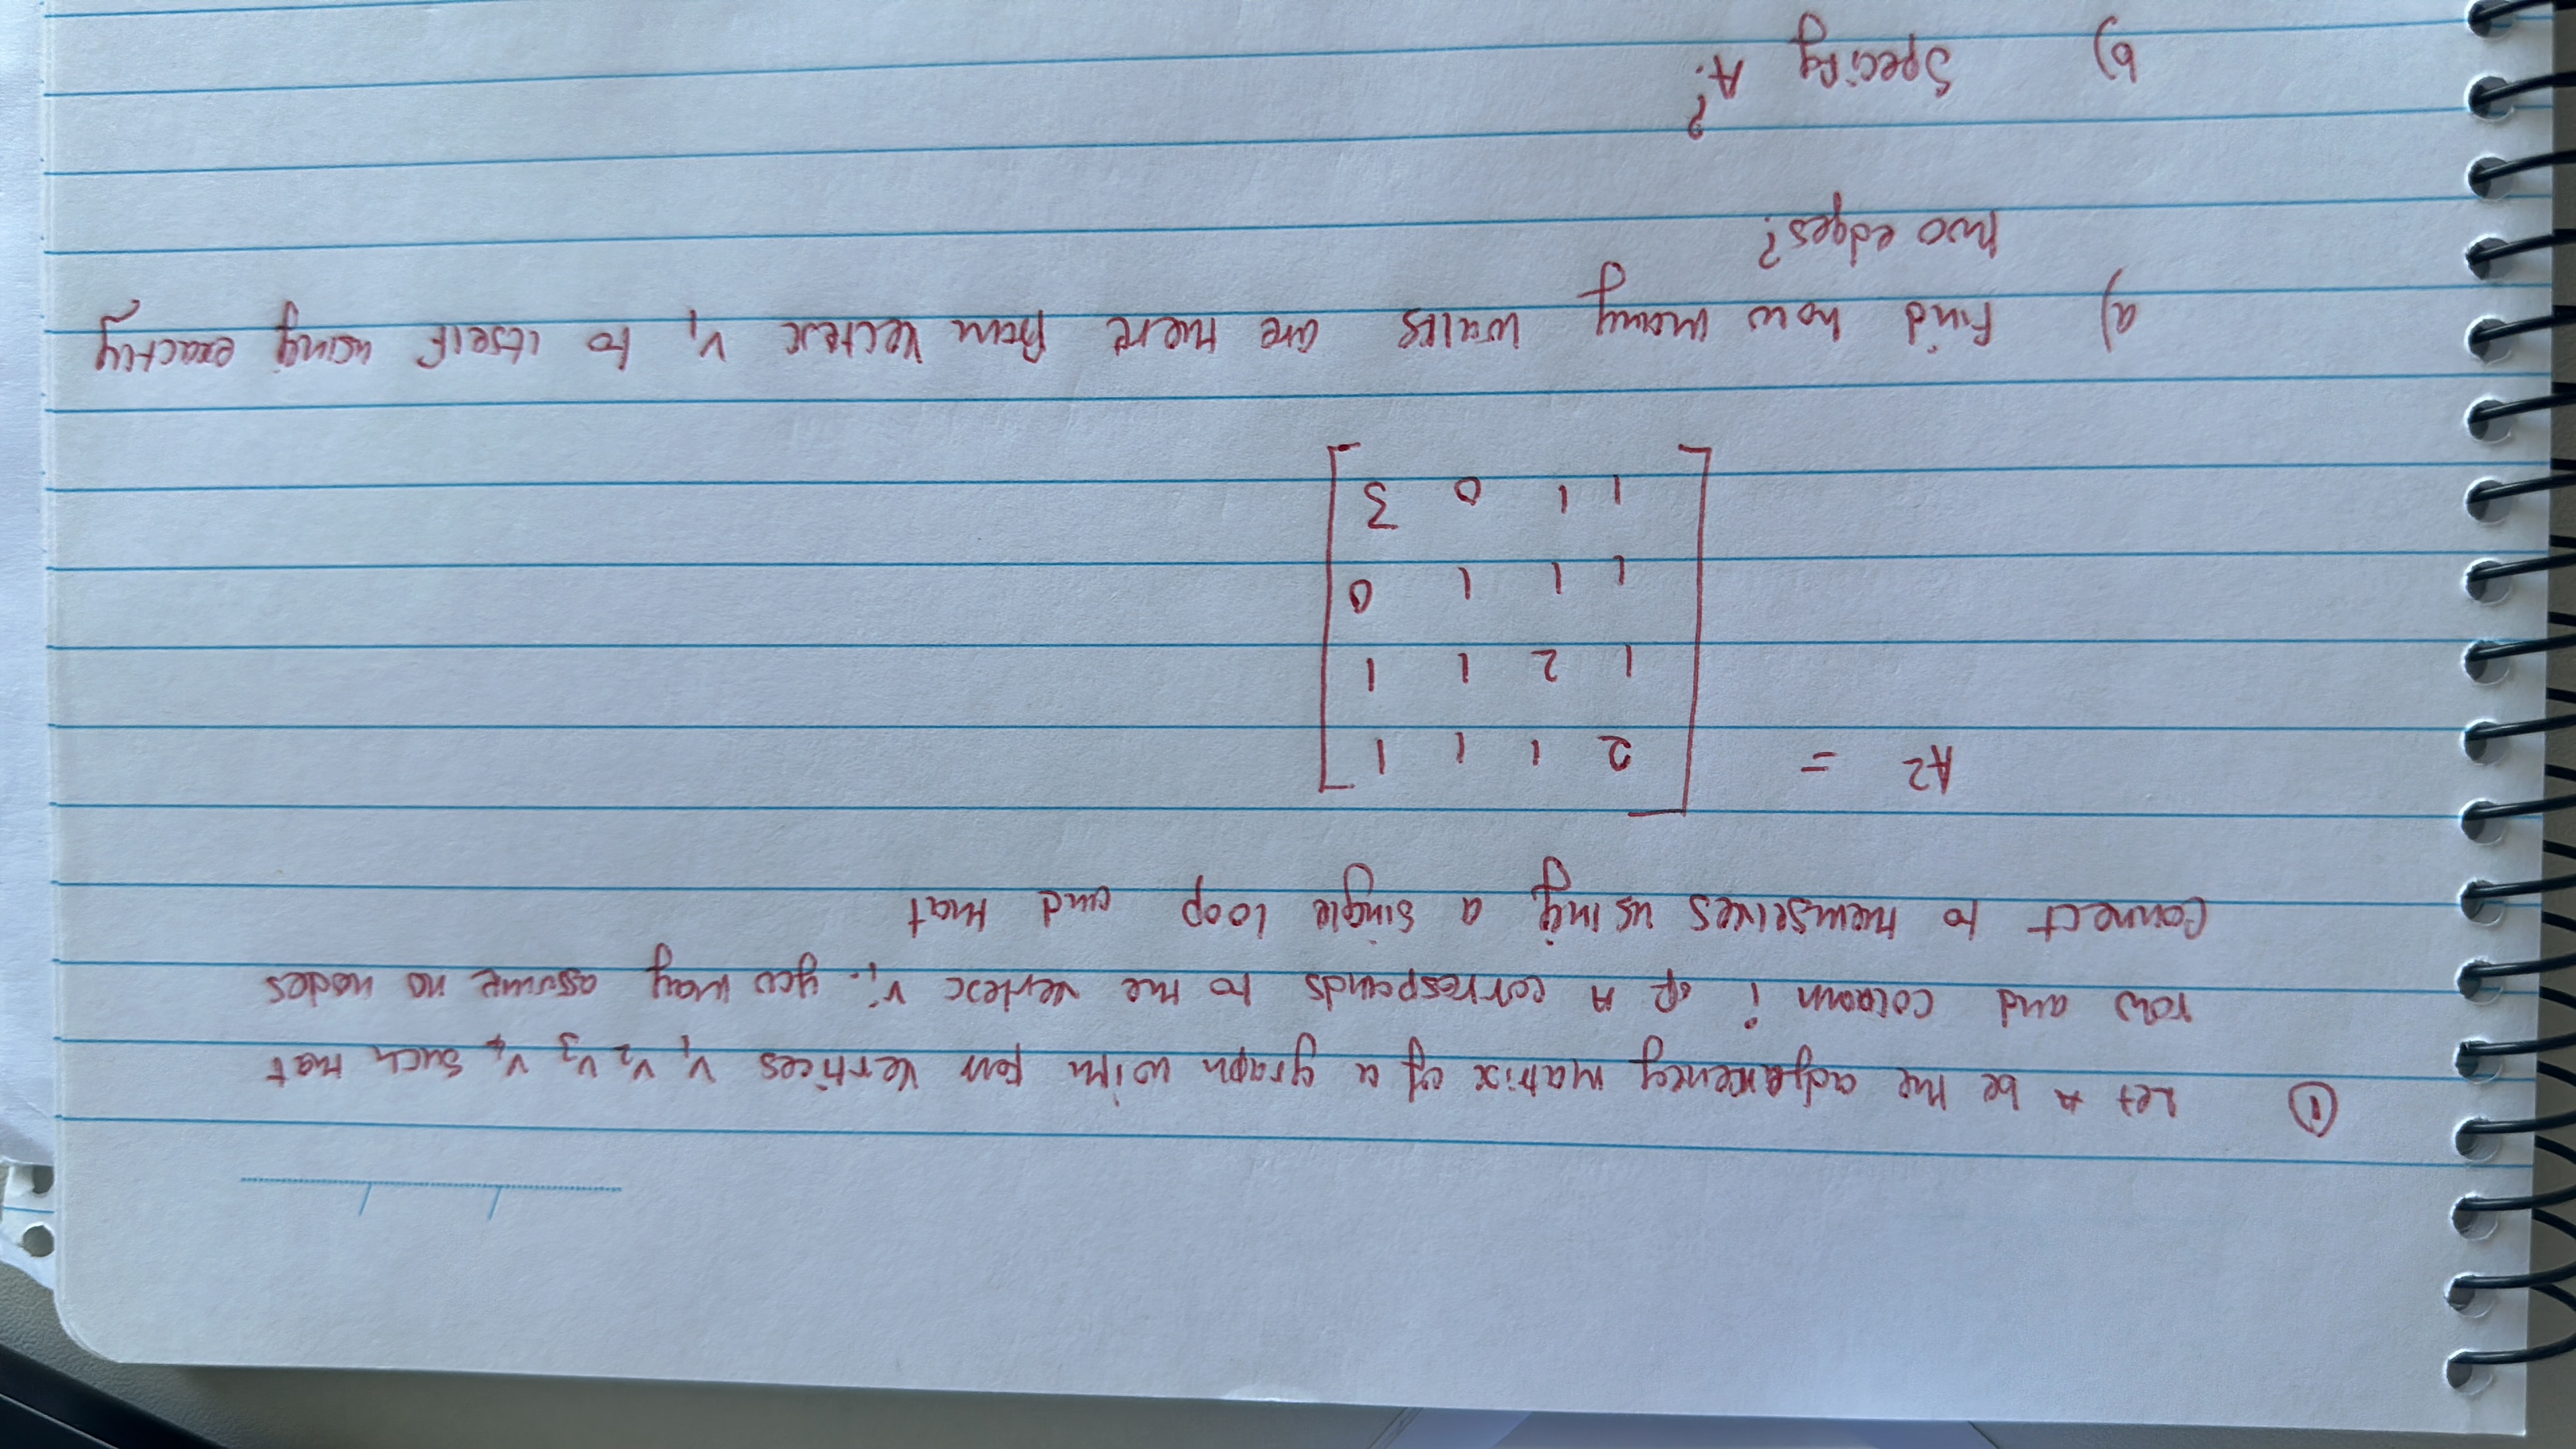 ① Let A be the adjacency matrix of a graph with four vertices V₁ V₂ V₃ V₄ such that
row and column i of A corresponds to the vertex Vᵢ. you may assume no nodes
connect to themselves using a single loop and that
A² = [ 2 1 1 1
1 2 1 1
1 1 1 0
1 1 0 3 ]
a) Find how many walks are there from vertex V₁ to itself using exactly
two edges?
b) Specify A?